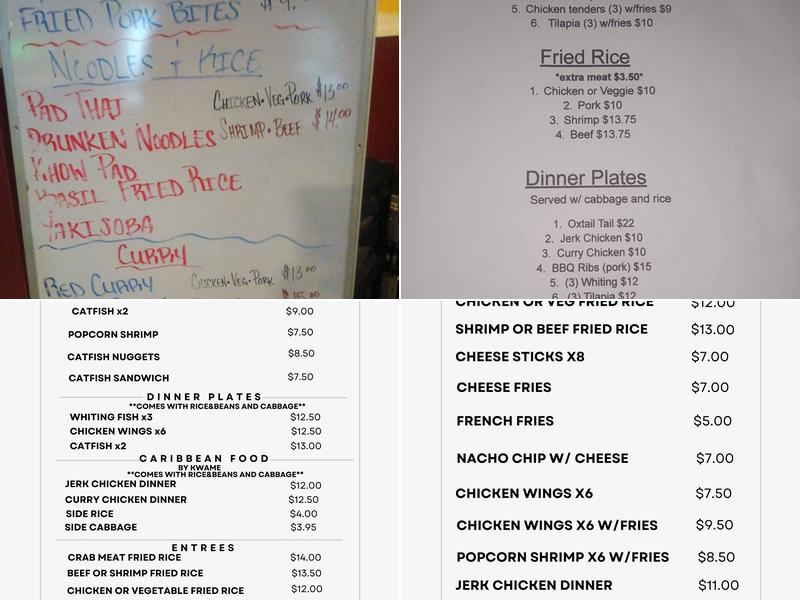 FRIED PORK BITES
NOODLES + RICE
PAD THAI
CHICKEN·VEG·PORK $13.00
DRUNKEN NOODLES
SHRIMP·BEEF $14.00
KHOW PAD
BASIL FRIED RICE
YAKISOBA
CURRY
RED CURRY
CHICKEN·VEG·PORK $13.00
$15.00
5. Chicken tenders (3) w/fries $9
6. Tilapia (3) w/fries $10
Fried Rice
*extra meat $3.50*
1. Chicken or Veggie $10
2. Pork $10
3. Shrimp $13.75
4. Beef $13.75
Dinner Plates
Served w/ cabbage and rice
1. Oxtail Tail $22
2. Jerk Chicken $10
3. Curry Chicken $10
4. BBQ Ribs (pork) $15
5. (3) Whiting $12
6. (3) Tilapia $12
CATFISH x2 $9.00
POPCORN SHRIMP $7.50
CATFISH NUGGETS $8.50
CATFISH SANDWICH $7.50
DINNER PLATES
**COMES WITH RICE&BEANS AND CABBAGE**
WHITING FISH x3 $12.50
CHICKEN WINGS x6 $12.50
CATFISH x2 $13.00
CARIBBEAN FOOD
BY KWAME
**COMES WITH RICE&BEANS AND CABBAGE**
JERK CHICKEN DINNER $12.00
CURRY CHICKEN DINNER $12.50
SIDE RICE $4.00
SIDE CABBAGE $3.95
ENTREES
CRAB MEAT FRIED RICE $14.00
BEEF OR SHRIMP FRIED RICE $13.50
CHICKEN OR VEGETABLE FRIED RICE $12.00
CHICKEN OR VEG FRIED RICE $12.00
SHRIMP OR BEEF FRIED RICE $13.00
CHEESE STICKS X8 $7.00
CHEESE FRIES $7.00
FRENCH FRIES $5.00
NACHO CHIP W/ CHEESE $7.00
CHICKEN WINGS X6 $7.50
CHICKEN WINGS X6 W/FRIES $9.50
POPCORN SHRIMP X6 W/FRIES $8.50
JERK CHICKEN DINNER $11.00